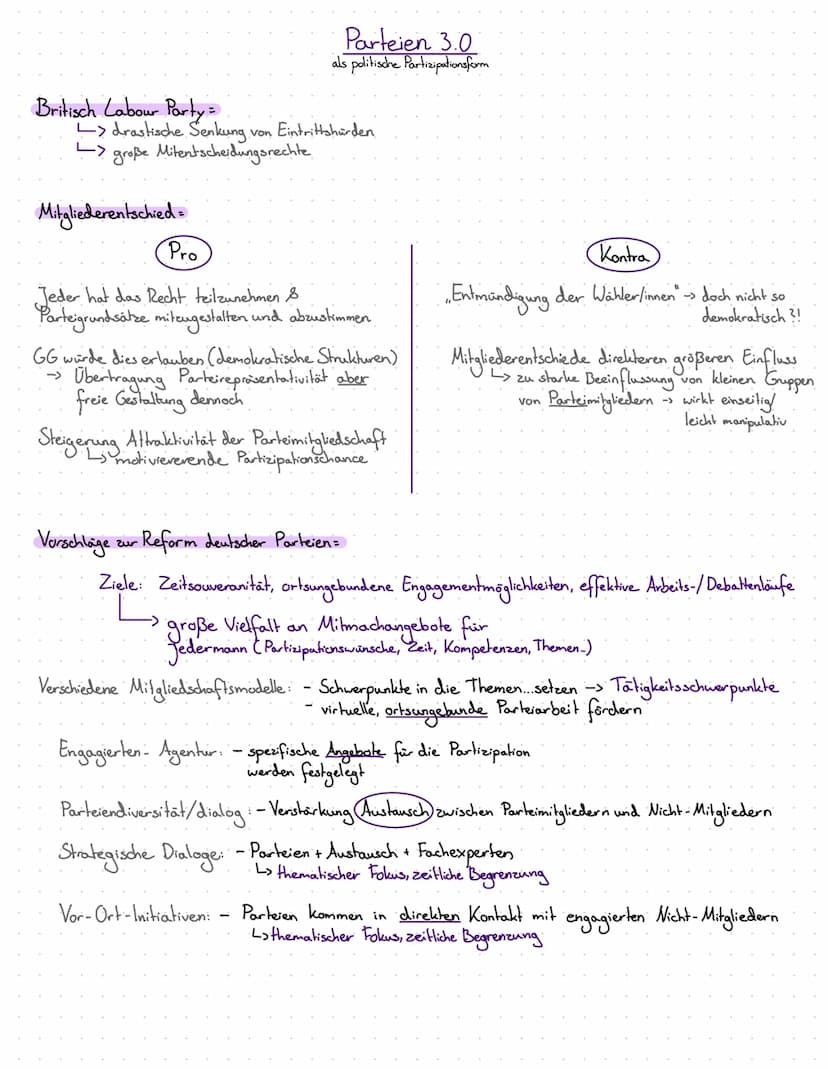 Parteien 3.0
als politische Partizipationsform
Britisch Labour Party =
↳ drastische Senkung von Eintrittshürden
↳ große Mitentscheidungsrechte
Mitgliederentschied =
Pro
Jeder hat das Recht teilzunehmen &
Parteigrundsätze mitzugestalten und abzustimmen
GG würde dies erlauben (demokratische Strukturen)
→ Übertragung Parteirepräsentativität aber
freie Gestaltung dennoch
Steigerung Attraktivität der Parteimitgliedschaft
↳ motivierevende Partizipationschance
Kontra
„Entmündigung der Wähler/innen" → doch nicht so
demokratisch?!
Mitgliederentschiede direkteren größeren Einfluss
↳ zu starke Beeinflussung von kleinen Gruppen
von Parteimitgliedern → wirkt einseitig/
leicht manipulativ
Vorschläge zur Reform deutscher Parteien =
Ziele: Zeitsouveranität, ortsungebundene Engagementmöglichkeiten, effektive Arbeits-/Debattenläufe
↳ große Vielfalt an Mitmachangebote für
Jedermann (Partizipationswünsche, Zeit, Kompetenzen, Themen..)
Verschiedene Mitgliedschaftsmodelle: - Schwerpunkte in die Themen...setzen → Tätigkeitsschwerpunkte
- virtuelle, ortsungebunde Parteiarbeit fördern
Engagierten- Agentur: - spezifische Angebote für die Partizipation
werden festgelegt
Parteiendiversität/dialog: - Verstärkung Austausch zwischen Parteimitgliedern und Nicht-Mitgliedern
Strategische Dialoge: - Parteien + Austausch + Fachexperten
↳ thematischer Fokus, zeitliche Begrenzung
Vor-Ort-Initiativen: - Parteien kommen in direkten Kontakt mit engagierten Nicht-Mitgliedern
↳ thematischer Fokus, zeitliche Begrenzung